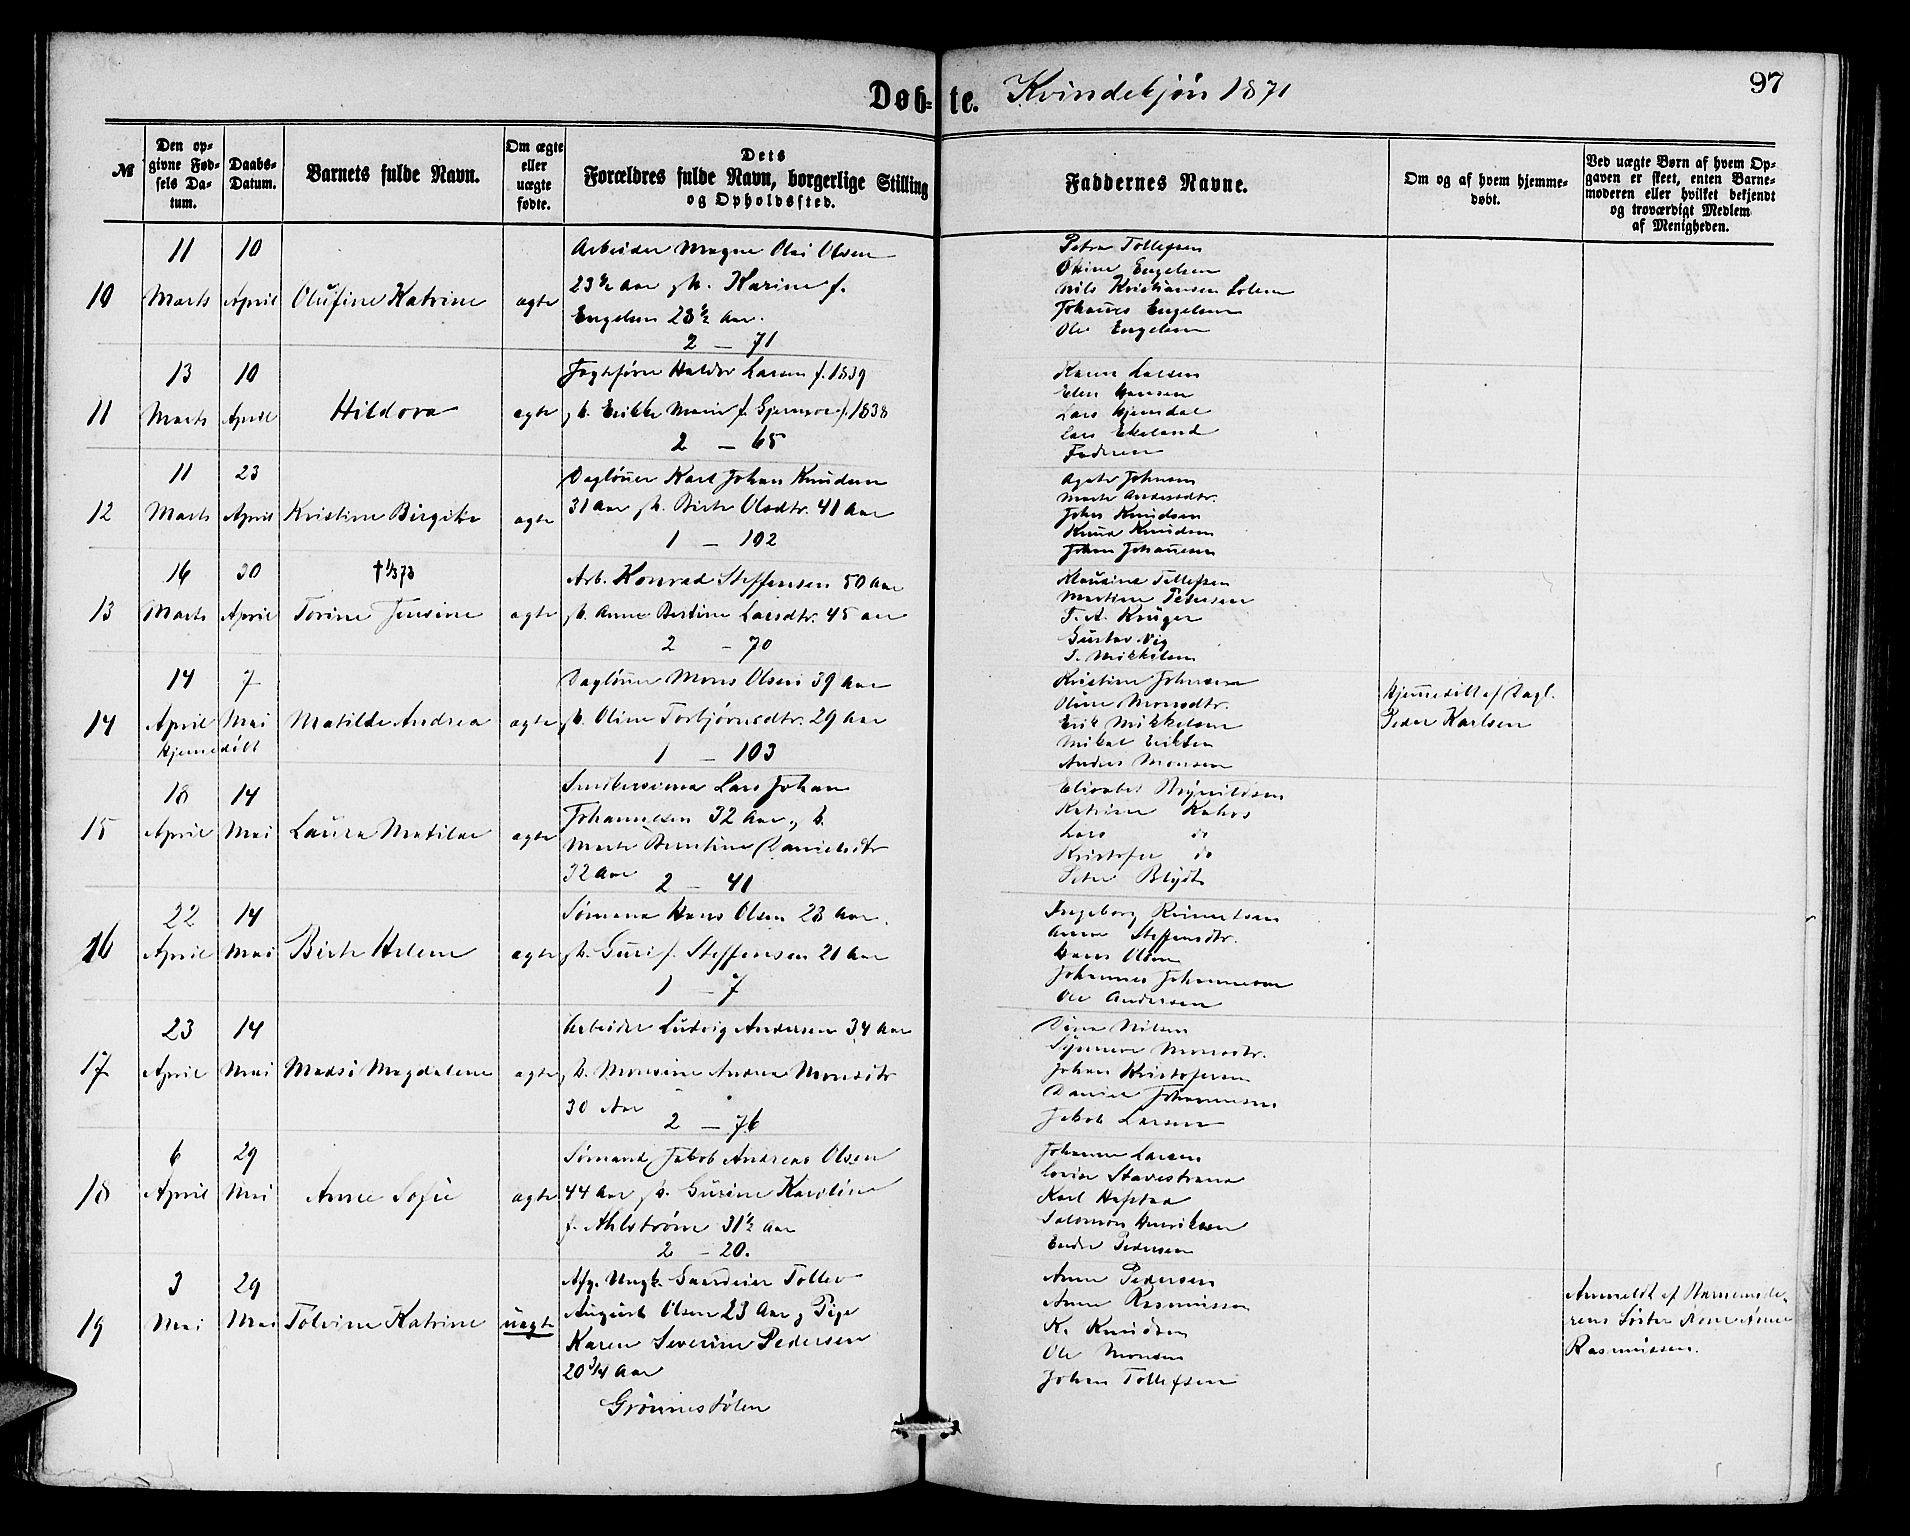 97
Døb=te. Kvindekjøn 1871
№
Den opgivne Fødsels Datum.
Daabs-Datum.
Barnets fulde Navn.
Om ægte eller uægte fødte.
Dets Forældres fulde Navn, borgerlige Stilling og Opholdssted.
Faddernes Navne.
Om og af hvem hjemmedøbt.
Ved uægte Børn af hvem Opgaven er skeet, enten Barnemoderen eller hvilket bekjendt og troværdigt Medlem af Menigheden.
10
11 Marts
10 April
Olufine Katrine
ægte
Arbeider Mogne Olai Olsen
23½ Aar g h. Karine f.
Engelsen 23½ Aar.
2 – 71
Petra Tollefsen
Engelsen
Nils Kristiansen
Johannes Engelsen
Ole Engelsen
11
13 Marts
10 April
Hildora
ægte
Jagtfører Haldor Larsen f. 1839
h. Erikke Marie f. 1838
2 – 65
Larsen
Elen Hansen
Lars Hjemdal
Lars Ekeland
Faderen
12
11 Marts
23 April
Kristine Birgitte
ægte
Dagløner Karl Johan Knudsen
31 Aar g h. Birte Olsdtr. 41 Aar
1 – 102
Agate Johnsen
Marte Andersdtr.
John Knudsen
Knud Knudsen
Johan Johannesen
13
16 Marts
30 April
† 1/3 73
Torine Jensine
ægte
Arb. Konrad Steffensen 50 Aar
g h. Anne Bertine Larsdtr. 45 aar
2 – 70
Tollefsen
Martine Petersen
F. A. Krüger
Gustav Vig
Mikkelsen
14
14 April
Hjemmedøbt
7 Mai
Matilde Andrea
ægte
Dagløner Mons Olsen 39 Aar
g h. Oline Torbjørnsdtr. 29 Aar
1 – 103
Kristine Johnsen
Oline Monsdtr.
Erik Mikkelsen
Mikal Eriksen
Anders Monsen
Hjemmedøbt af Dagl.
Peder Karlsen
15
18 April
14 Mai
Laura Matilde
ægte
Lars Johan
Johannesen 32 Aar g h.
Marte Berntine Danielsdtr
32 Aar
2 – 41
Elisabet
Katrine Kahrs
Lars do
Kristofer do
Blydt
16
22 April
14 Mai
Birte Helene
ægte
Sømand Hans Olsen 23 Aar.
g h. Guri f. Steffensen 21 Aar
1 – 7
Ingeborg Reinertsen
Anna Steffensdtr.
Hans Olsen
Johannes Johannesen
Ole Andersen
17
23 April
14 Mai
Madsi Magdalene
ægte
Arbeider Ludvig Andersen 34 Aar
g h. Monsine Andrea Monsdtr
30 Aar
2 – 76
Dina Nilsen
Synneve Monsdtr.
Johan Kristofersen
Daniel Johannesen
Jakob Larsen
18
6 April
29 Mai
Anne Sofie
ægte
Sømand Jakob Andreas Olsen
44 Aar g h. Gurine Karoline
f. Ahlstrøm 31½ Aar
2 – 20.
Johanne Larsen
Stavestrand
Karl Hafstad
Salomon Henriksen
Endre Pedersen
19
3 Mai
29 Mai
Tolvine Katrine
uægte
Afg. Ungk. Tollev
August Olsen 23 Aar g Pige
Karen Severine Pedersen
20¾ Aar
Grønnestølen
Anne Pedersen
Anne Rasmussen
K. Knudsen
Ole Monsen
Johan Tollefsen
Anmeldt af Barnemode-
rens Søster
Rasmussen.